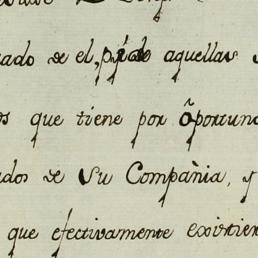 ado de el, pp.de aquellas
s que tiene por oportun
dos de su Compañia, y
que efectivamente existier